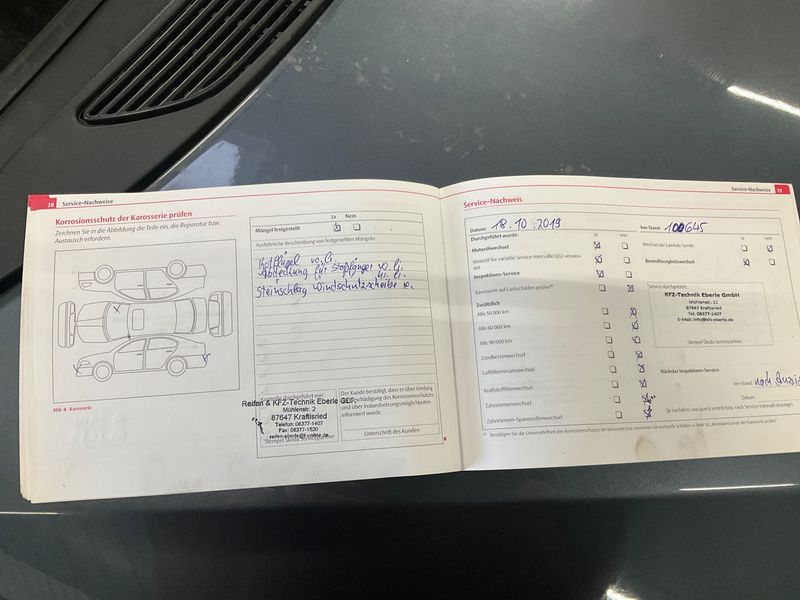 28 Service-Nachweise
Korrosionsschutz der Karosserie prüfen
Zeichnen Sie in die Abbildung die Teile ein, die Reparatur bzw.
Austausch erfordern.
Abb. 8 Karosserie
Ja Nein
Mängel festgestellt
Ausführliche Beschreibung von festgestellten Mängeln:
Kotflügel vo. li.
Abdeckung für Stoßfänger vo. li.
hi. li.
Steinschlag Windschutzscheibe re.
Kontrolle durchgeführt von:
Reifen & KFZ-Technik Eberle GbR
Mühlenstr. 2
87647 Kraftisried
Telefon: 08377-1407
Fax: 08377-1520
reifen-eberle@t-online.de
Stempel Škoda Servicepartner
Der Kunde bestätigt, dass er über Umfang
der Beschädigung des Korrosionsschutzes
und über Instandsetzungsmöglichkeiten
informiert wurde.
Unterschrift des Kunden
Service-Nachweise 29
Service-Nachweis
Datum: 18.10.2019 km-Stand: 100645
Durchgeführt wurde: ja nein
Motorölwechsel
Motoröl für variable Service-Intervalle QG1 verwen-
det
Inspektions-Service
Karosserie auf Lackschäden prüfen
Zusätzlich
Alle 30 000 km
Alle 60 000 km
Alle 90 000 km
Zündkerzenwechsel
Luftfiltereinsatzwechsel
Kraftstofffilterwechsel
Zahnriemenwechsel
Zahnriemen-Spannrollenwechsel
ja nein
Wechsel der Lambda-Sonde
Bremsflüssigkeitswechsel
Service durchgeführt:
KFZ-Technik Eberle GmbH
Mühlenstr. 11
87647 Kraftisried
Tel. 08377-1407
E-Mail: info@kfz-eberle.de
Stempel Škoda Servicepartner
Nächster Inspektions-Service:
km-Stand: nach
Datum:
(Je nachdem, was zuerst eintritt bzw. nach Service-Intervall-Anzeige)